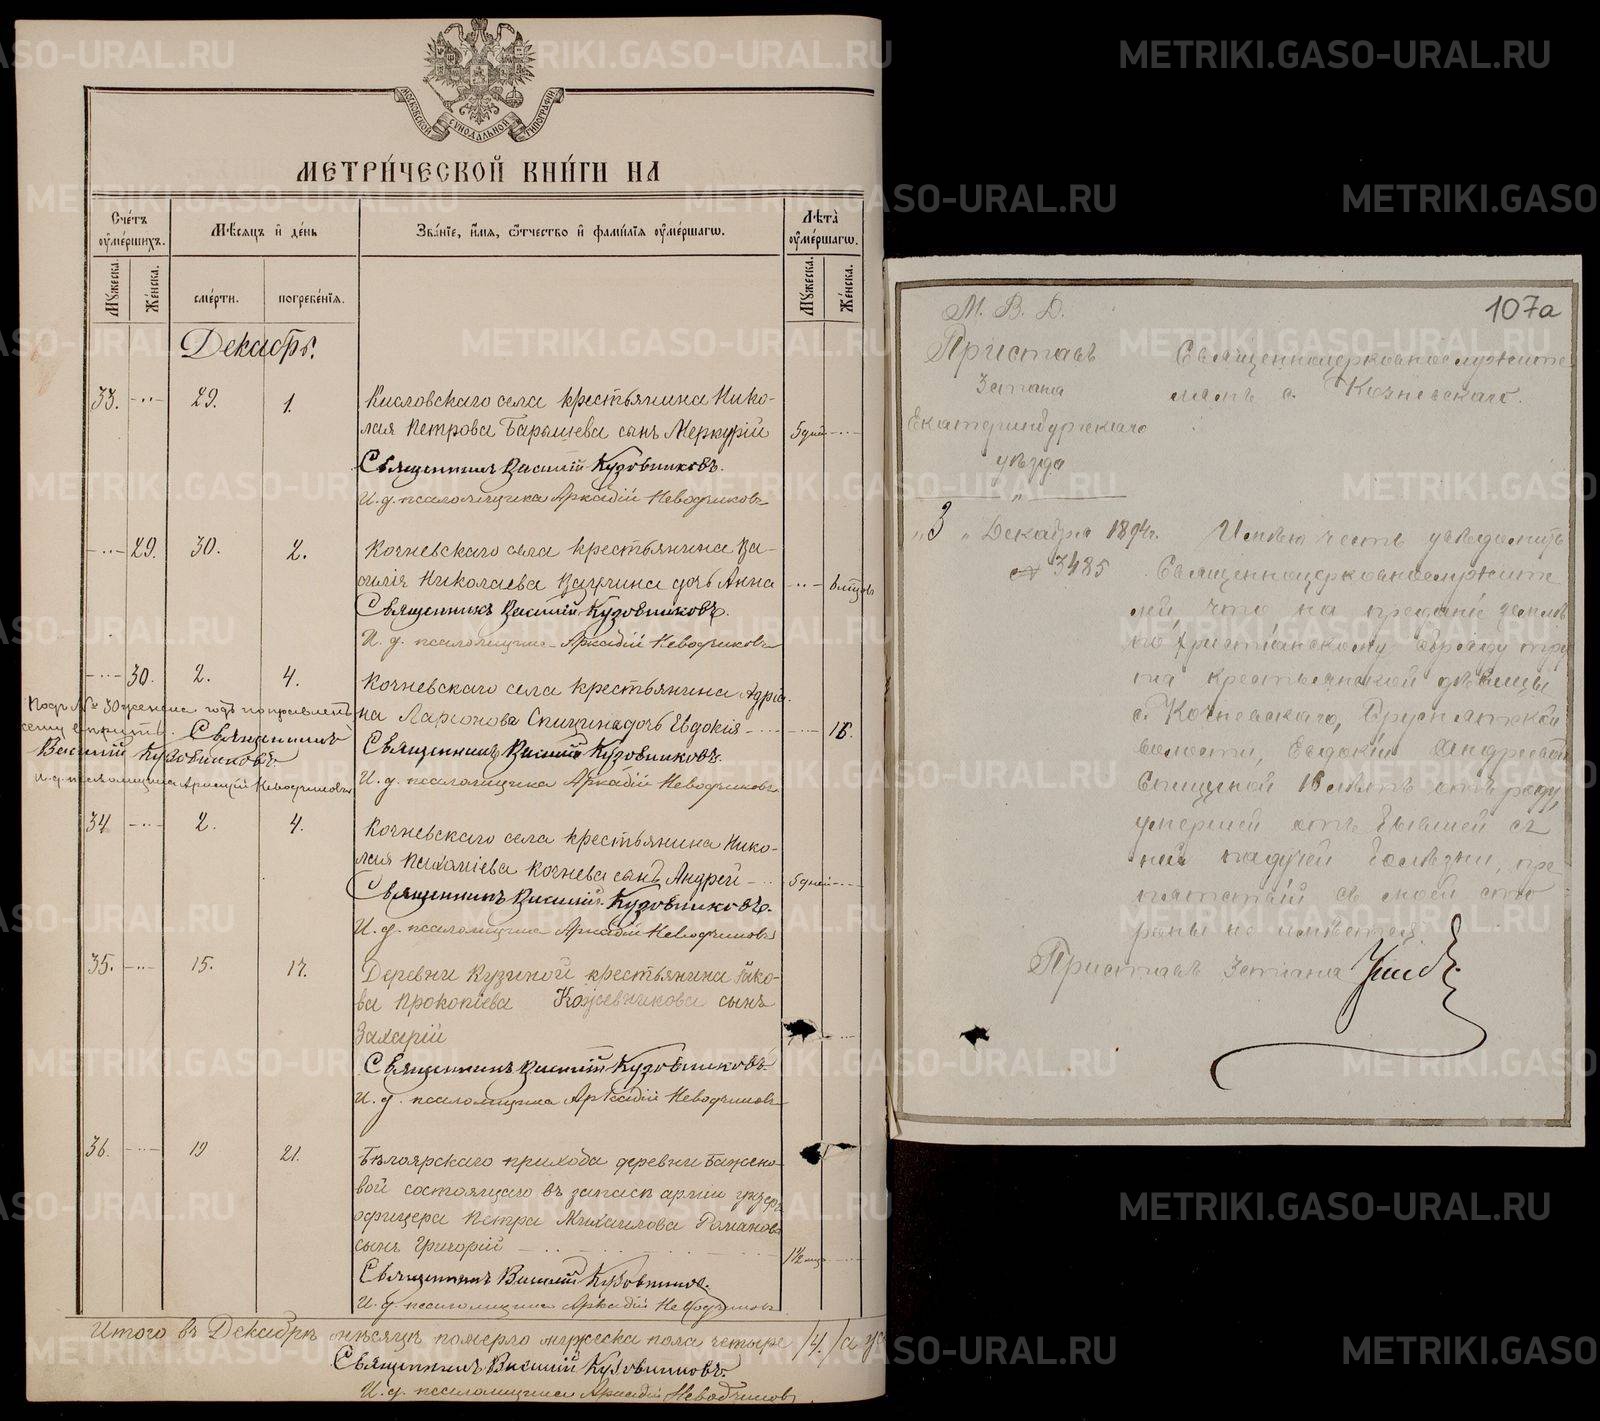 МОСКОВСКОЙ СѴНОДАЛЬНОЙ ТИПОГРАФІИ
МЕТРИ́ЧЕСКОЙ КНИ́ГИ НА
Сче́тъ оу҆ме́ршихъ.
Мѣ́сяцъ и҆ де́нь
Зва́нїе, и҆́мя, ѻ҆́тчество и҆ фами́лїя оу҆ме́ршагѡ.
Лѣта̀ оу҆ме́ршагѡ.
Мꙋ́жеска.
Же́нска.
сме́рти.
погребе́нїя.
Мꙋ́жеска.
Же́нска.
Декабрь.
33. 29. 1. Кисловскаго села крестьянина Нико-
лая Петрова Барышева сынъ Меркурій 5 дней
Священникъ Василій Кузовниковъ.
И. д. псаломщика Аркадій Неводчиковъ
29. 30. 2. Кочневскаго села крестьянина Ва-
силія Николаева дочь Анна
Священникъ Василій Кузовниковъ.
И. д. псаломщика Аркадій Неводчиковъ
30. 2. 4. Кочневскаго села крестьянина Андрія
на Ларіонова Спицина дочь Евдокія 18.
Священникъ Василій Кузовниковъ.
И. д. псаломщика Аркадій Неводчиковъ
Подъ № 30 женска
Священникъ
Василій Кузовниковъ
И. д. псаломщика Аркадій Неводчиковъ
34 2. 4. Кочневскаго села крестьянина Нико-
лая Пахоміева Кочнева сынъ Андрей 5 дней
Священникъ Василій Кузовниковъ.
И. д. псаломщика Аркадій Неводчиковъ
35. 15. 17. Деревни Кузиной крестьянина Яко-
ва Прокопіева Кожевникова сынъ
Захарій
Священникъ Василій Кузовниковъ.
И. д. псаломщика Аркадій Неводчиковъ
36. 19 21. Бѣлоярскаго прихода деревни Бажено-
вой состоящаго въ запасѣ арміи унтеръ
офицера Петра Михаилова Романова
сынъ Григорій 1½ мѣс.
Священникъ Василій Кузовниковъ.
И. д. псаломщика Аркадій Неводчиковъ
Итого въ Декабрѣ мѣсяцѣ померло мужеска пола четыре /4./ а
Священникъ Василій Кузовниковъ.
И. д. псаломщика Аркадій Неводчиковъ
107а
М. В. Д.
Приставъ
3 стана
Екатеринбургскаго
уѣзда
„3„ Декабря 1894 г.
№ 3485
Священноцерковнослужите
лямъ с. Кочневскаго.
Имѣю честь увѣдомить
Священноцерковнослужите
лей, что на преданіе землѣ
по христіанскому обряду тру
па крестьянской дѣвицы
с. Кочневскаго, Бруснятской
волости, Евдокіи Андреевой
Спициной 18 лѣтъ отъ роду,
умершей отъ бывшей съ
нею падучей болѣзни, пре
пятствій съ моей сто
роны не имѣется
Приставъ 3 стана
METRIKI.GASO-URAL.RU